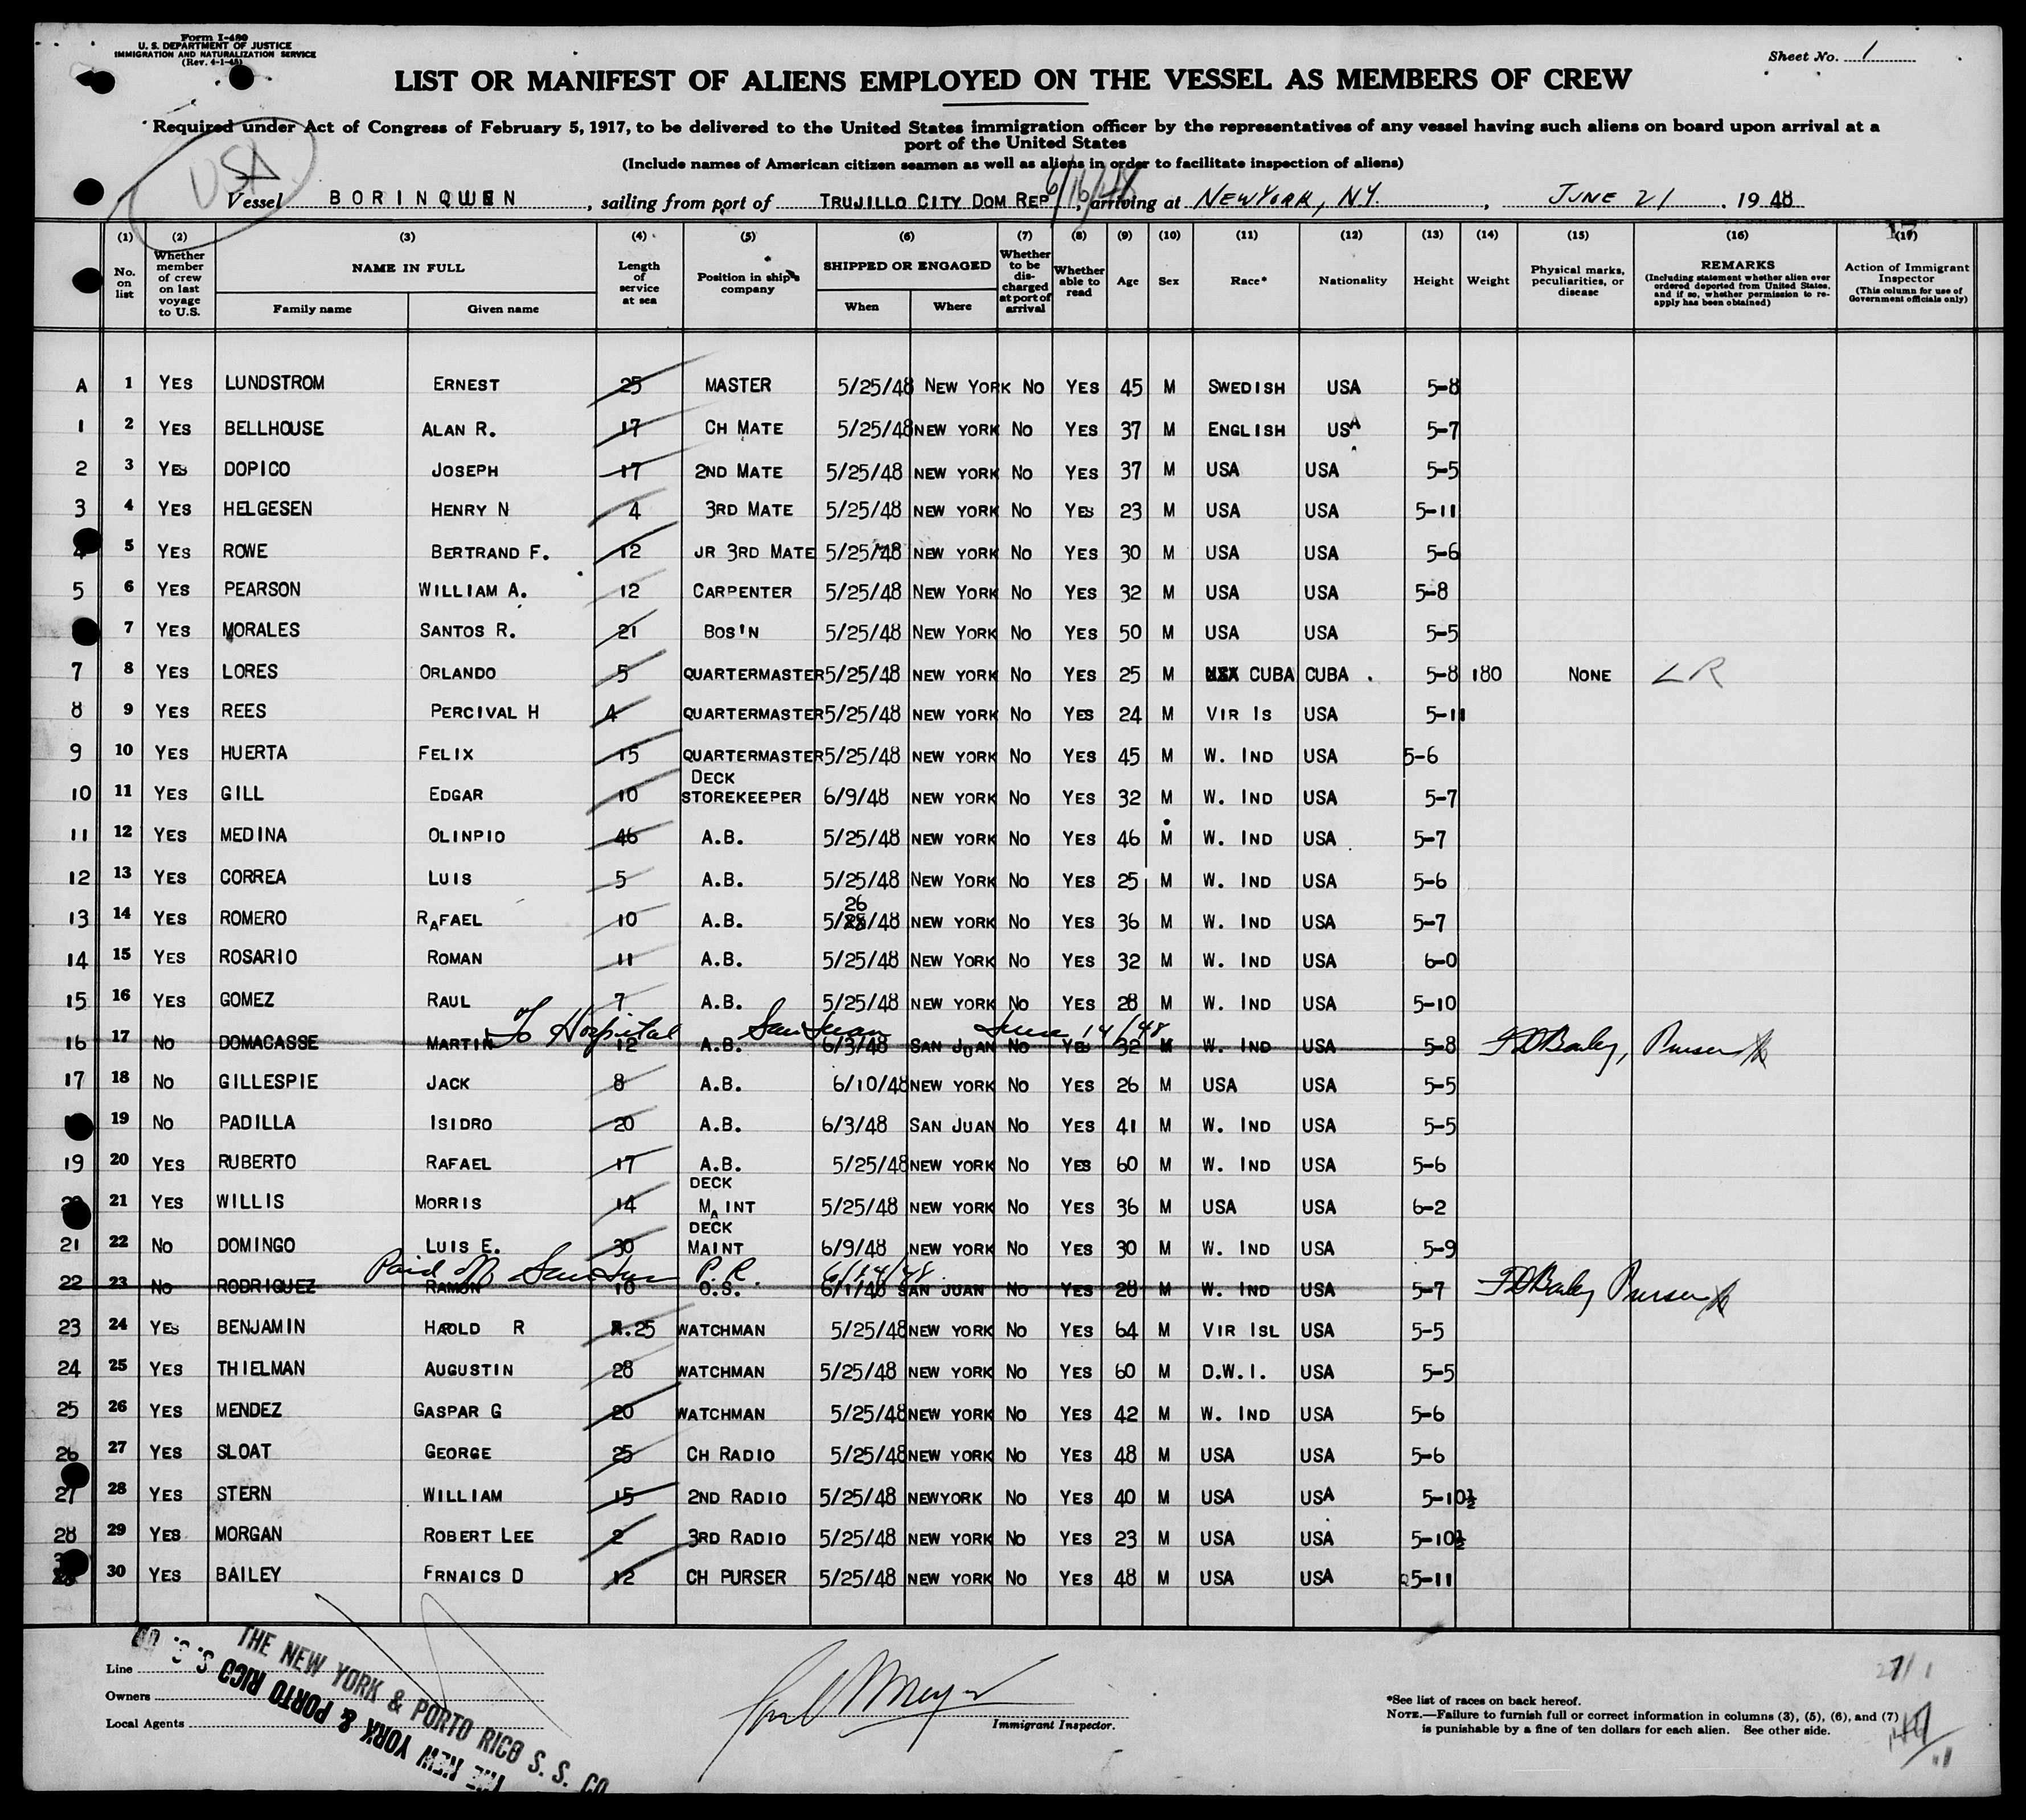 Form I-480
U. S. DEPARTMENT OF JUSTICE
IMMIGRATION AND NATURALIZATION SERVICE
(Rev. 4-1-48)
Sheet No. 1
LIST OR MANIFEST OF ALIENS EMPLOYED ON THE VESSEL AS MEMBERS OF CREW
Required under Act of Congress of February 5, 1917, to be delivered to the United States immigration officer by the representatives of any vessel having such aliens on board upon arrival at a
port of the United States
(Include names of American citizen seamen as well as aliens in order to facilitate inspection of aliens)
USA
6/16/48
Vessel BORINQUEN, sailing from port of TRUJILLO CITY DOM REP, arriving at NEW YORK, NY., JUNE 21, 1948
(1) (2) (3) (4) (5) (6) (7) (8) (9) (10) (11) (12) (13) (14) (15) (16) (17)
No. on list Whether member of crew on last voyage to U.S. NAME IN FULL Family name Given name Length of service at sea Position in ship's company SHIPPED OR ENGAGED When Where Whether to be discharged at port of arrival Whether able to read Age Sex Race* Nationality Height Weight Physical marks, peculiarities, or disease REMARKS (Including statement whether alien ever ordered deported from United States, and if so, whether permission to reapply has been obtained) Action of Immigrant Inspector (This column for use of Government officials only)
A 1 YES LUNDSTROM ERNEST 25 MASTER 5/25/48 NEW YORK NO YES 45 M SWEDISH USA 5-8
1 2 YES BELLHOUSE ALAN R. 17 CH MATE 5/25/48 NEW YORK NO YES 37 M ENGLISH USA 5-7
2 3 YES DOPICO JOSEPH 17 2ND MATE 5/25/48 NEW YORK NO YES 37 M USA USA 5-5
3 4 YES HELGESEN HENRY N 4 3RD MATE 5/25/48 NEW YORK NO YES 23 M USA USA 5-11
4 5 YES ROWE BERTRAND F. 12 JR 3RD MATE 5/25/48 NEW YORK NO YES 30 M USA USA 5-6
5 6 YES PEARSON WILLIAM A. 12 CARPENTER 5/25/48 NEW YORK NO YES 32 M USA USA 5-8
7 YES MORALES SANTOS R. 21 BOS'N 5/25/48 NEW YORK NO YES 50 M USA USA 5-5
7 8 YES LORES ORLANDO 5 QUARTERMASTER 5/25/48 NEW YORK NO YES 25 M CUBA CUBA . 5-8 180 NONE LR
8 9 YES REES PERCIVAL H 4 QUARTERMASTER 5/25/48 NEW YORK NO YES 24 M VIR IS USA 5-11
9 10 YES HUERTA FELIX 15 QUARTERMASTER 5/25/48 NEW YORK NO YES 45 M W. IND USA 5-6
10 11 YES GILL EDGAR 10 DECK STOREKEEPER 6/9/48 NEW YORK NO YES 32 M W. IND USA 5-7
11 12 YES MEDINA OLINPIO 46 A.B. 5/25/48 NEW YORK NO YES 46 M W. IND USA 5-7
12 13 YES CORREA LUIS 5 A.B. 5/25/48 NEW YORK NO YES 25 M W. IND USA 5-6
13 14 YES ROMERO RAFAEL 10 A.B. 5/26/48 NEW YORK NO YES 36 M W. IND USA 5-7
14 15 YES ROSARIO ROMAN 11 A.B. 5/25/48 NEW YORK NO YES 32 M W. IND USA 6-0
15 16 YES GOMEZ RAUL 7 A.B. 5/25/48 NEW YORK NO YES 28 M W. IND USA 5-10
To Hospital San Juan June 14/48
16 17 NO DOMACASSE MARTIN 12 A.B. 6/3/48 SAN JUAN NO YES 32 M W. IND USA 5-8 FDBailey, Purser
17 18 NO GILLESPIE JACK 8 A.B. 6/10/48 NEW YORK NO YES 26 M USA USA 5-5
19 NO PADILLA ISIDRO 20 A.B. 6/3/48 SAN JUAN NO YES 41 M W. IND USA 5-5
19 20 YES RUBERTO RAFAEL 17 A.B. 5/25/48 NEW YORK NO YES 60 M W. IND USA 5-6
20 21 YES WILLIS MORRIS 14 DECK MAINT 5/25/48 NEW YORK NO YES 36 M USA USA 6-2
21 22 NO DOMINGO LUIS E. 30 DECK MAINT 6/9/48 NEW YORK NO YES 30 M W. IND USA 5-9
Paid Off San Juan P.R. 6/14/48
22 23 NO RODRIQUEZ RAMON 10 O.S. 6/1/48 SAN JUAN NO YES 28 M W. IND USA 5-7 FDBailey Purser
23 24 YES BENJAMIN HAROLD R 25 WATCHMAN 5/25/48 NEW YORK NO YES 64 M VIR ISL USA 5-5
24 25 YES THIELMAN AUGUSTIN 28 WATCHMAN 5/25/48 NEW YORK NO YES 60 M D.W.I. USA 5-5
25 26 YES MENDEZ GASPAR G 20 WATCHMAN 5/25/48 NEW YORK NO YES 42 M W. IND USA 5-6
26 27 YES SLOAT GEORGE 25 CH RADIO 5/25/48 NEW YORK NO YES 48 M USA USA 5-6
27 28 YES STERN WILLIAM 15 2ND RADIO 5/25/48 NEWYORK NO YES 40 M USA USA 5-10½
28 29 YES MORGAN ROBERT LEE 2 3RD RADIO 5/25/48 NEW YORK NO YES 23 M USA USA 5-10½
30 YES BAILEY FRNAICS D 12 CH PURSER 5/25/48 NEW YORK NO YES 48 M USA USA 5-11
Line
Owners
Local Agents
THE NEW YORK & PORTO RICO S. S. CO
THE NEW YORK & PORTO RICO S. S. CO
Immigrant Inspector.
*See list of races on back hereof.
NOTE.—Failure to furnish full or correct information in columns (3), (5), (6), and (7)
is punishable by a fine of ten dollars for each alien. See other side.